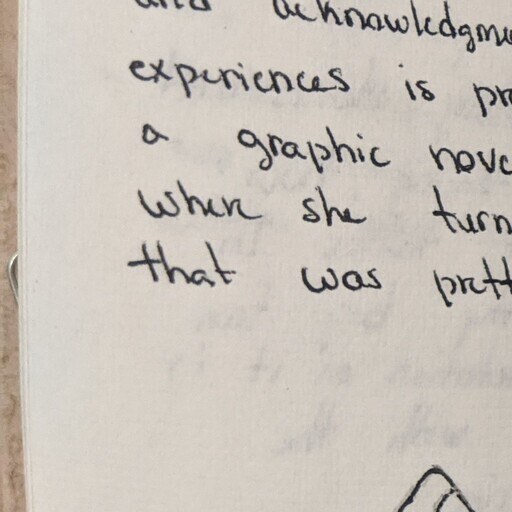 and acknowledgme
experiences is pr
a graphic nove
where she turn
that was prett